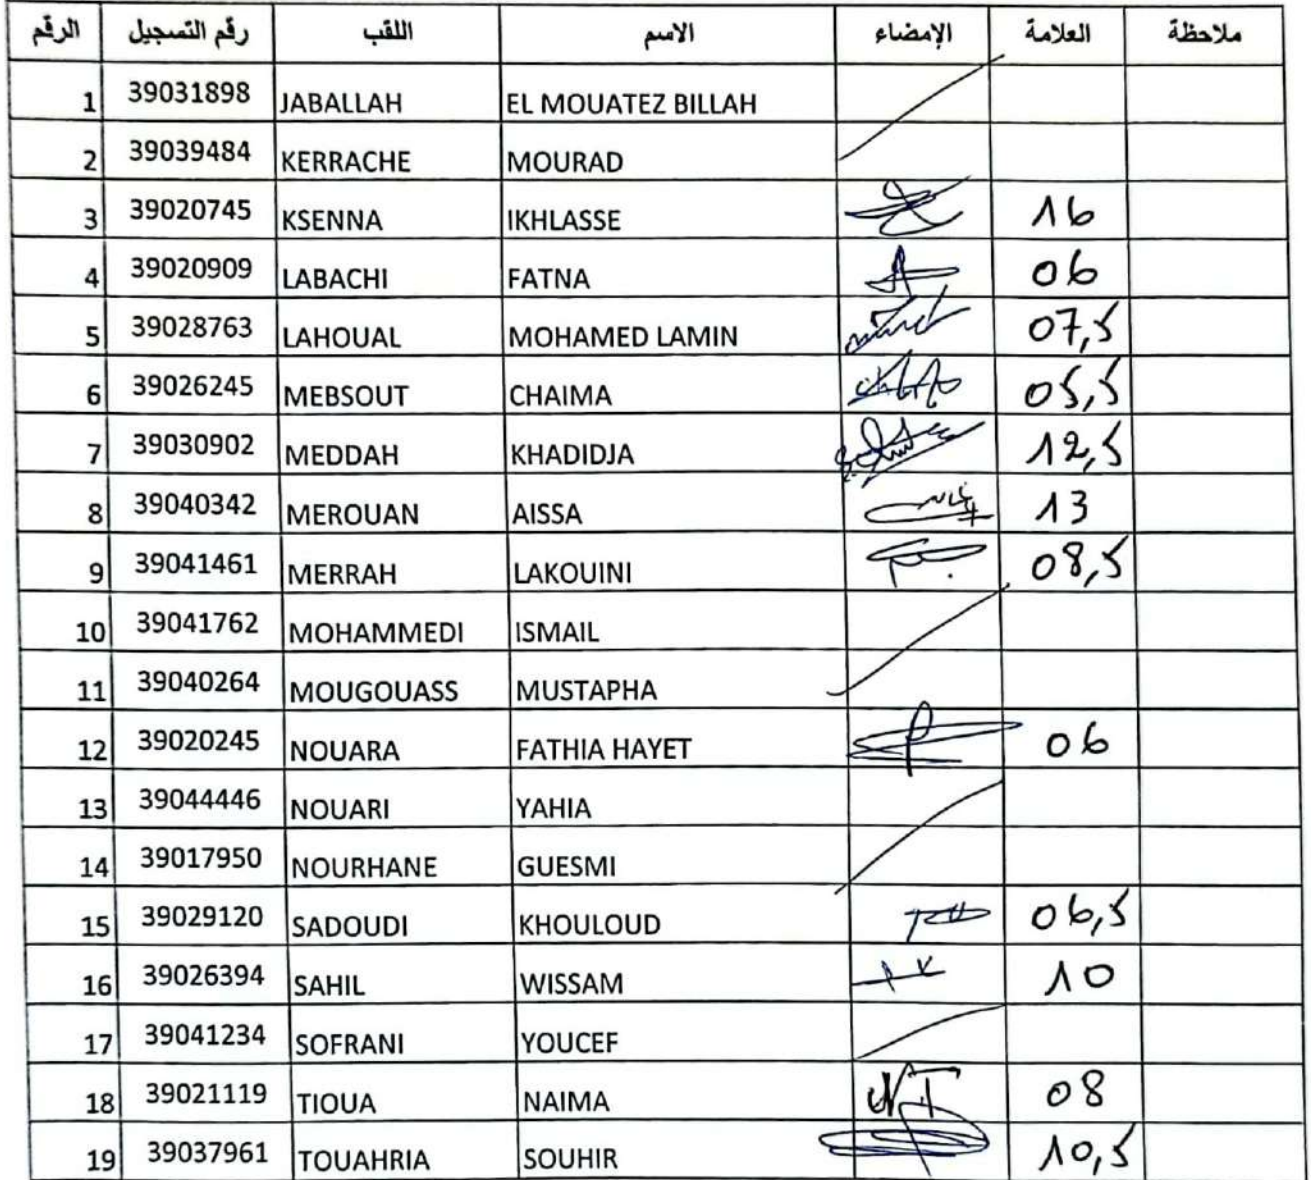 الرقم رقم التسجيل اللقب الاسم الإمضاء العلامة ملاحظة
1 39031898 JABALLAH EL MOUATEZ BILLAH
2 39039484 KERRACHE MOURAD
3 39020745 KSENNA IKHLASSE 16
4 39020909 LABACHI FATNA 06
5 39028763 LAHOUAL MOHAMED LAMIN 07,5
6 39026245 MEBSOUT CHAIMA 05,5
7 39030902 MEDDAH KHADIDJA 12,5
8 39040342 MEROUAN AISSA 13
9 39041461 MERRAH LAKOUINI 08,5
10 39041762 MOHAMMEDI ISMAIL
11 39040264 MOUGOUASS MUSTAPHA
12 39020245 NOUARA FATHIA HAYET 06
13 39044446 NOUARI YAHIA
14 39017950 NOURHANE GUESMI
15 39029120 SADOUDI KHOULOUD 06,5
16 39026394 SAHIL WISSAM 10
17 39041234 SOFRANI YOUCEF
18 39021119 TIOUA NAIMA 08
19 39037961 TOUAHRIA SOUHIR 10,5